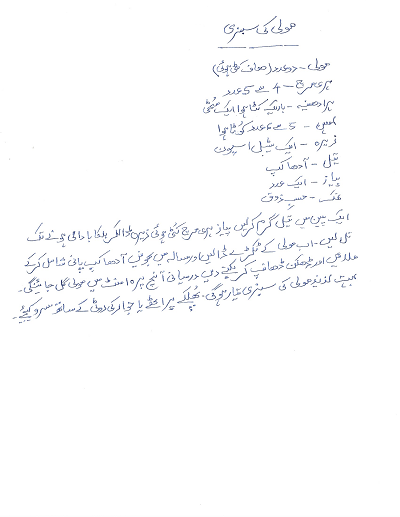 مولی کی سبزی
مولی - دو عدد (صاف کٹی ہوئی)
ہری مرچ - 4 سے 5 عدد
ہرا دھنیہ - باریک کٹا ہوا ایک مٹھی
لہسن - 5 سے 6 عدد کوٹا ہوا
زیرہ - ایک ٹیبل اسپون
تیل - آدھا کپ
پیاز - ایک عدد
نمک - حسبِ ذوق
ایک پین میں تیل گرم کرلیں پیاز ہری مرچ کٹی ہوئی زیرہ ڈالکر ہلکا بادامی ہونے تک
تل لیں - اب مولی کے ٹکڑے ڈالیں اور مسالہ میں بھونیں آدھا کپ پانی شامل کرکے
ملا دیں اور ڈھکن ڈھانپ کر پکنے دیں درمیانی آنچ پر 10 منٹ میں مولی گل جائیگی -
بہت لذیذ مولی کی سبزی تیار ہوگی - پھلکے پراٹھے یا جوار کی روٹی کے ساتھ سرو کیجئے -